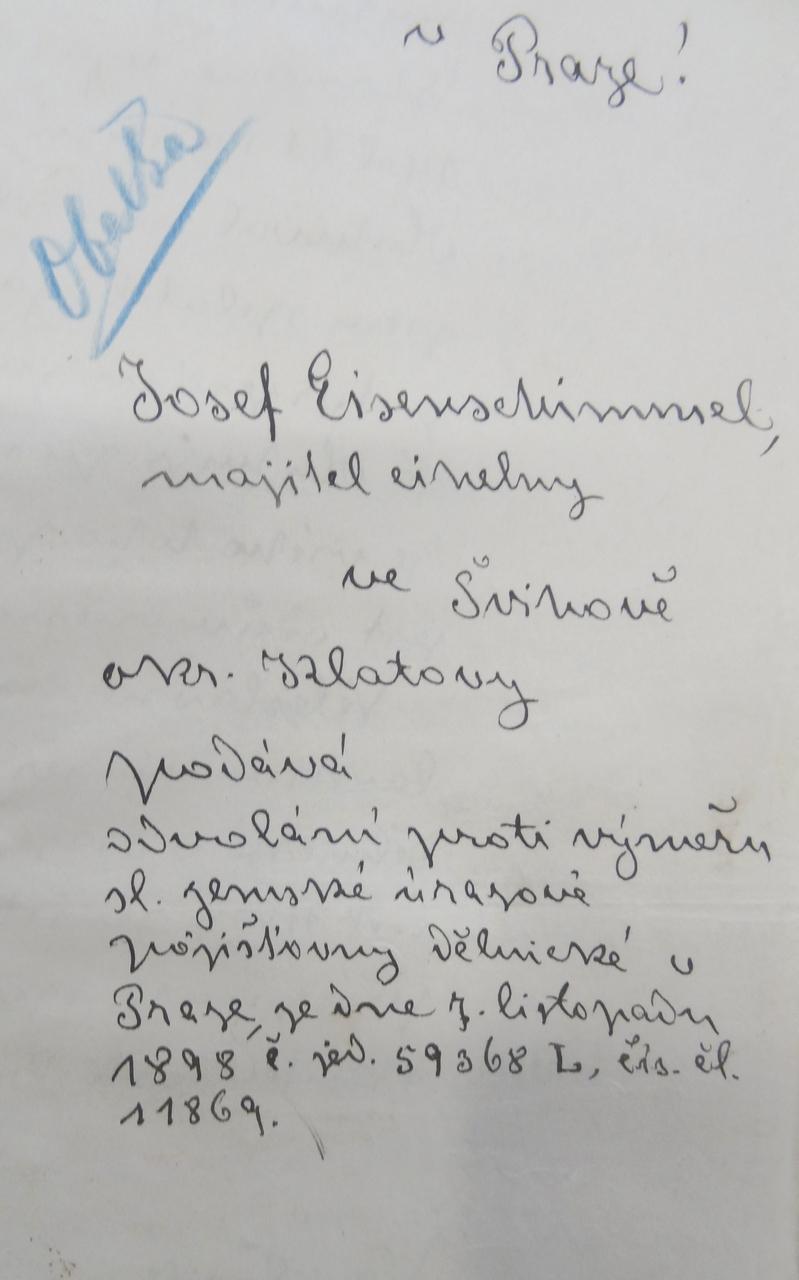 v Praze!
Obálka
Josef Eisenschimmel,
majitel cihelny
ve Švihově
okr. Klatovy
podává
odvolání proti výměru
sl. zemské úrazové
pojišťovny dělnické v
Praze, ze dne 7. listopadu
1898 č. jed. 59368 L, čís. čl.
11869.